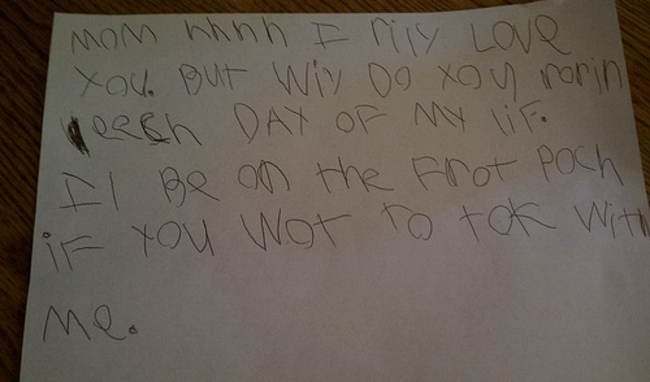 MOM hhhh I rily LOVE
YOU. BUT WiY DO YOU rorin
eech DAY OF MY liF.
I'l BE on the Front poch
iF YOU WoT TO toK With
Me.